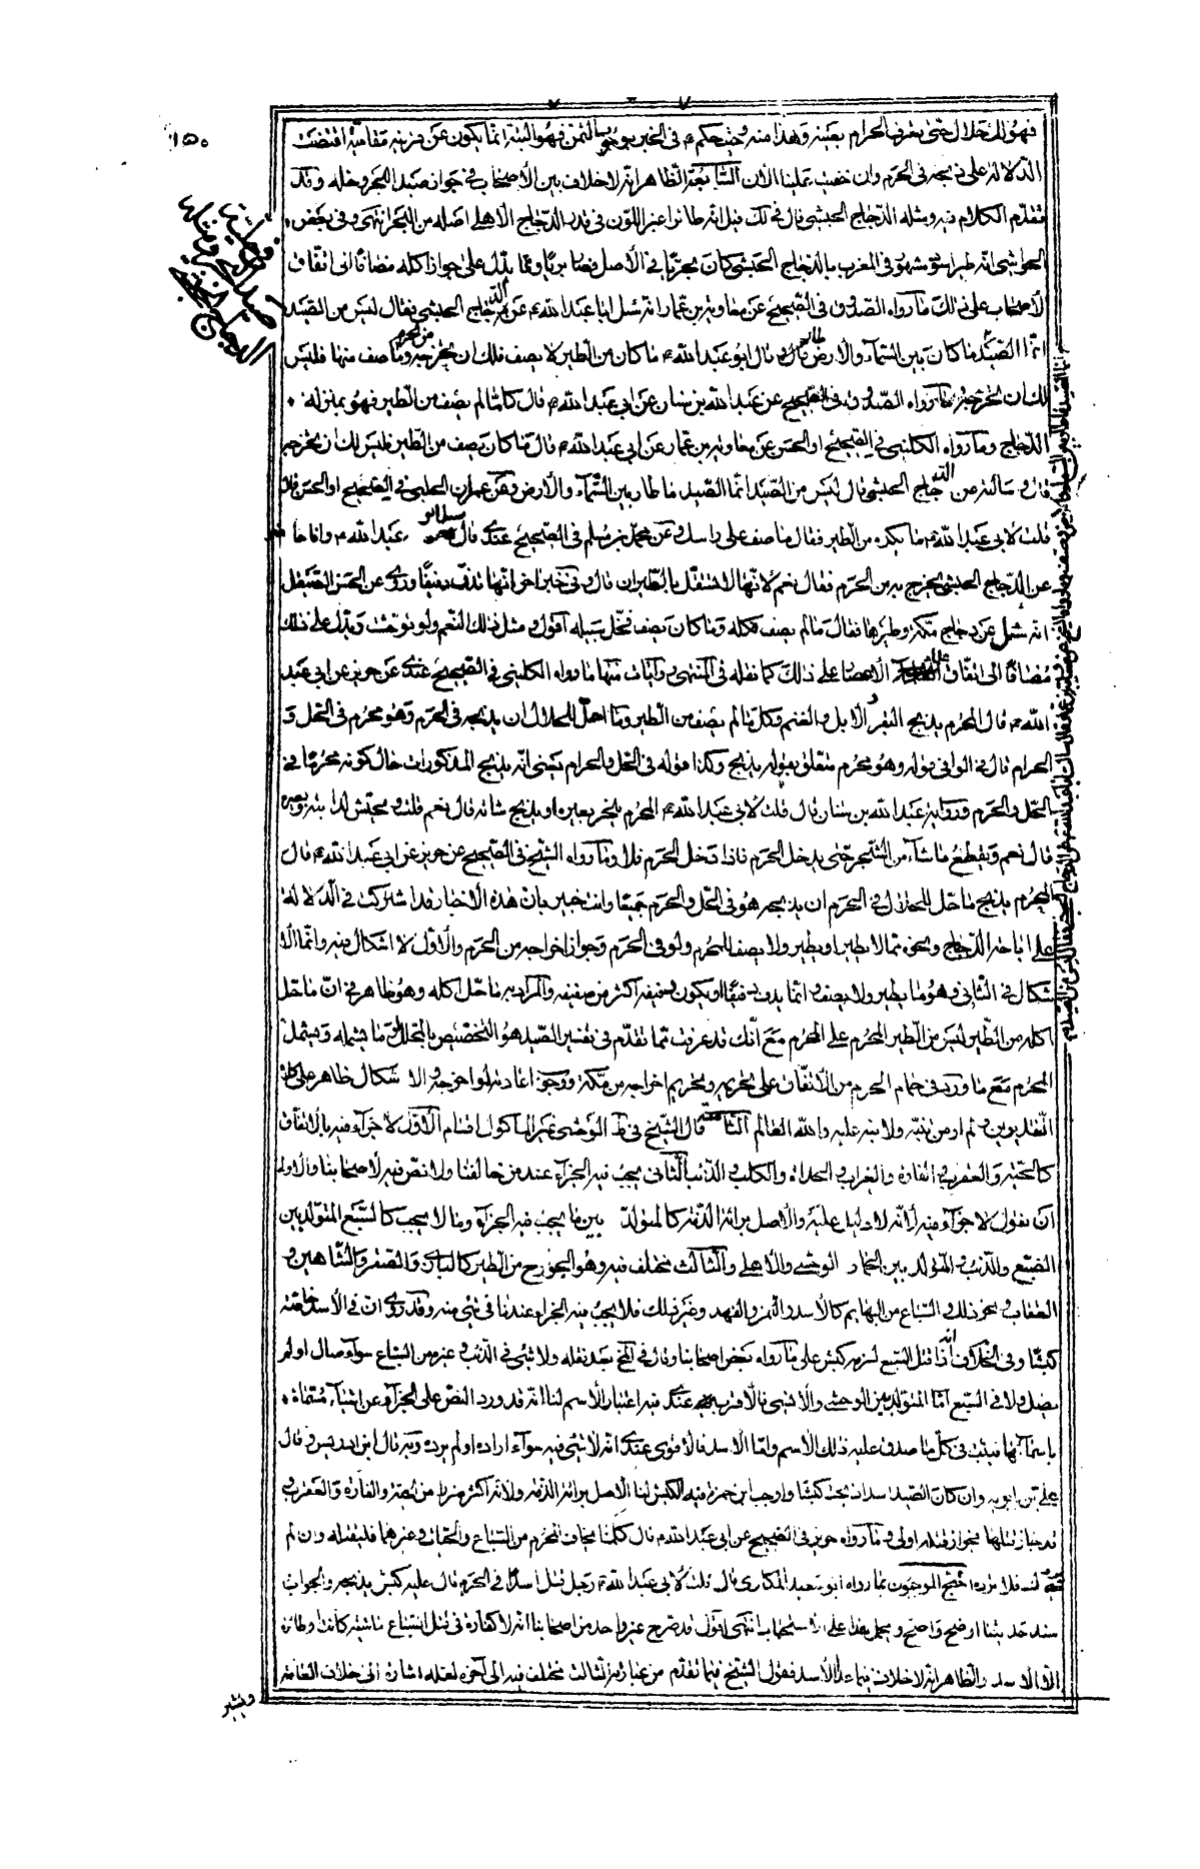 ١٥٠
فهو لك حلال حتى تعرف الحرام بعينه وهذا منه وحيث حكم م في الخبر بوجوب الثمن فهو البتة انما يكون عن قرينة مقامية اقتضت
الدلالة على ذبحه في الحرم وان خفيت علينا الان السابعة الظاهر انه لا خلاف بين الأصحاب في جواز صيد البحر وحله وقد
تقدم الكلام فيه ومثله الدجاج الحبشي قال في لك قيل انه طائر اغبر اللون في قدر الدجاج الأهلي اصله من البحر انتهى وفي بعض
الحواشي انه طير مشهور في المغرب بالدجاج الحبشي كان بحريا في الأصل فصار بريا ومما يدل على جواز اكله مضافا الى اتفاق
الأصحاب على ذلك ما رواه الصدوق في الصحيح عن معاوية بن عمار انه سئل ابا عبد الله ع عن الدجاج الحبشي فقال ليس من الصيد
انما الصيد ما كان بين السماء والأرض قال وقال ابو عبد الله ع ما كان من الطير لا يصف فلك ان تخرجه من الحرم وما صف منها فليس
لك ان تخرجه وما رواه الصدوق في الصحيح عن عبد الله بن سنان عن ابي عبد الله ع قال كلما لم يصف من الطير فهو بمنزلة
الدجاج وما رواه الكليني في الصحيح او الحسن عن معاوية بن عمار عن ابي عبد الله ع قال ما كان يصف من الطير فليس لك ان تخرجه
قال وسألته عن الدجاج الحبشي قال ليس من الصيد انما الصيد ما طار بين السماء والأرض وعن عمران الحلبي في الصحيح او الحسن قال
قلت لابي عبد الله ع ما يكره من الطير فقال ما صف على راسك وعن محمد بن مسلم في الصحيح عندي قال سئل ابو عبد الله ع وانا حاضر
عن الدجاج الحبشي يخرج به من الحرم فقال نعم لانها لا تستقل بالطيران قال وفي خبر اخر انها تدف دفيفا وروى عن الحسن الصيقل
انه سئل عن دجاج مكة وطيرها فقال ما لم يصف فكله وما كان يصف فخل سبيله أقول ومثل ذلك النعم ولو توحشت ويدل على ذلك
مضافا الى اتفاق الأصحاب على ذلك كما نقله في المنتهى روايات منها ما رواه الكليني في الصحيح عندي عن حريز عن ابي عبد
الله ع قال المحرم يذبح البقر والابل والغنم وكلما لم يصف من الطير وما احل للحلال ان يذبحه في الحرم وهو محرم في الحل و
الحرام قال في الوافي قوله وهو محرم متعلق بقوله يذبح وكذا قوله في الحل والحرام يعني انه يذبح المذكورات حال كونه محرما في
الحل والحرم ورواية عبد الله بن سنان قال قلت لابي عبد الله ع المحرم ينحر بعيره او يذبح شاته قال نعم قلت ويحتش لدابته وبعيره
قال نعم ويقطع ما شاء من الشجر حتى يدخل الحرم فاذا دخل الحرم فلا وما رواه الشيخ في الصحيح عن حريز عن ابي عبد الله ع قال
المحرم يذبح ما حل للحلال في الحرم ان يذبحه هو في الحل والحرم جميعا وانت خبير بان هذه الأخبار قد اشتركت في الدلالة
على اباحة الدجاج ونحوه مما لا يطير او يطير ولا يصف للمحرم ولو في الحرم وجواز اخراجه من الحرم والأول لا اشكال فيه وانما الا
شكال في الثاني وهو ما يطير ولا يصف وانما يدف دفيفا او يكون دفيفه اكثر من صفيفه والمراد به ما حل اكله وهو ظاهر في ان ما حل
اكله من الطير ليس من الطير المحرم على المحرم مع انك قد عرفت مما تقدم في تفسير الصيد هو التخصيص بالمحلل او ما يشمله ويشمل
المحرم مع ما ورد في حمام الحرم من الاتفاق على تحريمه وتحريم اخراجه من مكة ووجوب اعادته لو اخرجه والاشكال ظاهر على كلا
التقديرين ولم ار من تنبه ولا نبه عليه والله العالم الثامنة قال الشيخ في ط الوحشي غير المأكول اقسام الأول لا جزاء فيه بالاتفاق
كالحية والعقرب والفارة والغراب والحداة والكلب والذئب الثاني يجب فيه الجزاء عند من خالفنا ولا نص فيه لأصحابنا والأولى
ان نقول لا جزاء فيه لانه لا دليل عليه والأصل براءة الذمة كالمتولد بين ما يجب فيه الجزاء وما لا يجب كالسبع المتولد بين
الضبع والذئب والمتولد بين الحمار الوحشي والأهلي والثالث مختلف فيه وهو الجوارح من الطير كالبازي والصقر والشاهين و
العقاب ونحو ذلك والسباع من البهائم كالأسد والنمر والفهد وغير ذلك فلا يجب فيه الجزاء عندنا في شيء منه وقد روى ان في الأسد خاصة
كبشا وفي الخلاف انه اذا قتل السبع لزمه كبش على ما رواه بعض اصحابنا وقال في المخ بعد نقله ولا شيء في الذئب وغيره من السباع سواء صال او لم
يصل ولا في السبع اما المتولد بين الوحشي والانسي فالأقرب عندي فيه اعتبار الاسم لنا انه قد ورد النص على الجزاء عن اشياء مسماة
باسمائها فيثبت في كل ما صدق عليه ذلك الاسم واما الأسد فالأقوى عندي انه لا شيء فيه سواء اراده او لم يرده وبه قال ابن ادريس وقال
علي بن بابويه وان كان الصيد اسدا ذبحت كبشا واوجب ابن حمزة فيه الكبش لنا الأصل براءة الذمة ولانه اكثر ضررا من الحية والفارة والعقرب و
قد جاز قتلها فجواز قتله اولى وما رواه حريز في الصحيح عن ابي عبد الله ع قال كلما يخاف المحرم من السباع والحيات وغيرهما فليقتله وان لم
يردك فلا ترده احتج الموجبون بما رواه ابو سعيد المكاري قال قلت لابي عبد الله ع رجل قتل اسدا في الحرم قال عليه كبش يذبحه والجواب
سند حديثنا اوضح واصح ويحمل هذا على الاستحباب انتهى أقول قد صرح غير واحد من اصحابنا انه لا كفارة في قتل السباع ماشية كانت او طائرة
الا الأسد والظاهر انه لا خلاف فيما عدا الأسد فقول الشيخ فيما تقدم من عبارته الثالث مختلف فيه الى اخره لعله اشارة الى خلاف العامة